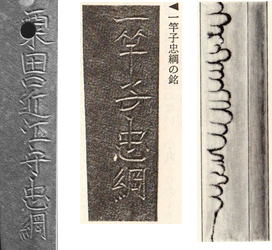 粟田口近江守忠綱
一竿子忠綱
◀一竿子忠綱の銘